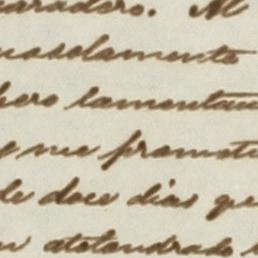 paradero. Al
solamente
pero lamentan
y me promet
de doce dias que
atolondrado